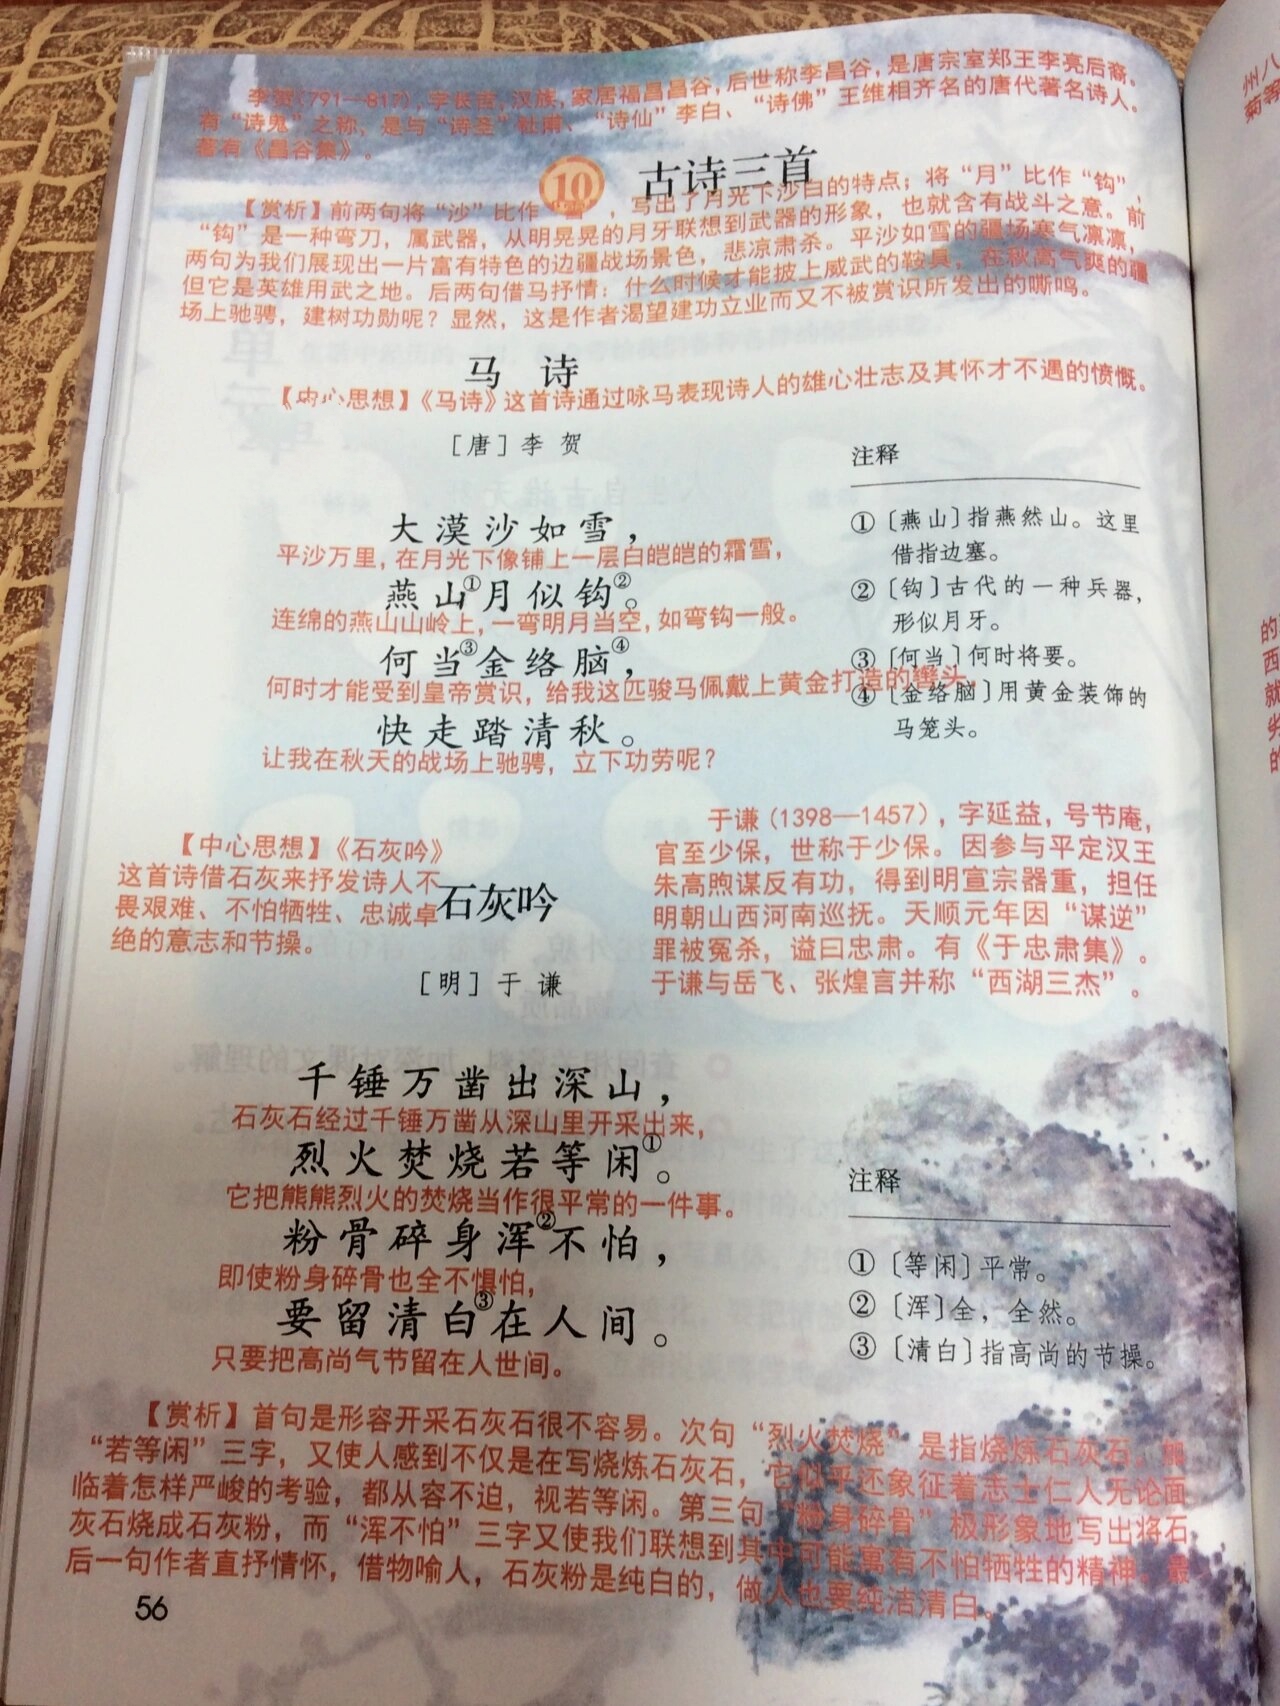 李贺（791—817），字长吉，汉族，家居福昌昌谷，后世称李昌谷，是唐宗室郑王李亮后裔。
有“诗鬼”之称，是与“诗圣”杜甫、“诗仙”李白、“诗佛”王维相齐名的唐代著名诗人。
著有《昌谷集》。
10 古诗三首
【赏析】前两句将“沙”比作“雪”，写出了月光下沙白的特点；将“月”比作“钩”，
“钩”是一种弯刀，属武器，从明晃晃的月牙联想到武器的形象，也就含有战斗之意。前
两句为我们展现出一片富有特色的边疆战场景色，悲凉肃杀。平沙如雪的疆场寒气凛凛，
但它是英雄用武之地。后两句借马抒情：什么时候才能披上威武的鞍具，在秋高气爽的疆
场上驰骋，建树功勋呢？显然，这是作者渴望建功立业而又不被赏识所发出的嘶鸣。
马 诗
【中心思想】《马诗》这首诗通过咏马表现诗人的雄心壮志及其怀才不遇的愤慨。
［唐］李 贺
大漠沙如雪，
平沙万里，在月光下像铺上一层白皑皑的霜雪，
燕山①月似钩②。
连绵的燕山山岭上，一弯明月当空，如弯钩一般。
何当③金络脑④，
何时才能受到皇帝赏识，给我这匹骏马佩戴上黄金打造的辔头，
快走踏清秋。
让我在秋天的战场上驰骋，立下功劳呢？
注释
①〔燕山〕指燕然山。这里
借指边塞。
②〔钩〕古代的一种兵器，
形似月牙。
③〔何当〕何时将要。
④〔金络脑〕用黄金装饰的
马笼头。
【中心思想】《石灰吟》
这首诗借石灰来抒发诗人不
畏艰难、不怕牺牲、忠诚卓
绝的意志和节操。
石灰吟
［明］于 谦
于谦（1398—1457），字延益，号节庵，
官至少保，世称于少保。因参与平定汉王
朱高煦谋反有功，得到明宣宗器重，担任
明朝山西河南巡抚。天顺元年因“谋逆”
罪被冤杀，谥曰忠肃。有《于忠肃集》。
于谦与岳飞、张煌言并称“西湖三杰”。
千锤万凿出深山，
石灰石经过千锤万凿从深山里开采出来，
烈火焚烧若等闲①。
它把熊熊烈火的焚烧当作很平常的一件事。
粉骨碎身浑②不怕，
即使粉身碎骨也全不惧怕，
要留清白③在人间。
只要把高尚气节留在人世间。
注释
①〔等闲〕平常。
②〔浑〕全，全然。
③〔清白〕指高尚的节操。
【赏析】首句是形容开采石灰石很不容易。次句“烈火焚烧”是指烧炼石灰石。加
“若等闲”三字，又使人感到不仅是在写烧炼石灰石，它似乎还象征着志士仁人无论面
临着怎样严峻的考验，都从容不迫，视若等闲。第三句“粉身碎骨”极形象地写出将石
灰石烧成石灰粉，而“浑不怕”三字又使我们联想到其中可能寓有不怕牺牲的精神。最
后一句作者直抒情怀，借物喻人，石灰粉是纯白的，做人也要纯洁清白。
56
州八
菊等
的
西
就
劣
的